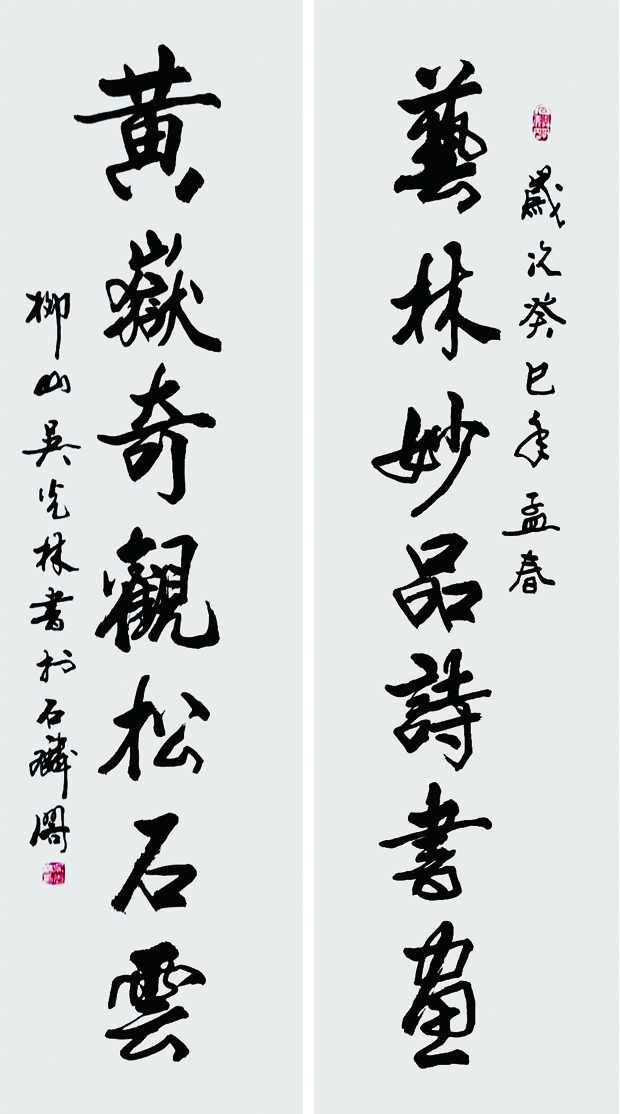 歲次癸巳年孟春
藝林妙品詩書畫
黃嶽奇觀松石雲
柳山吳光林書於石麟閣